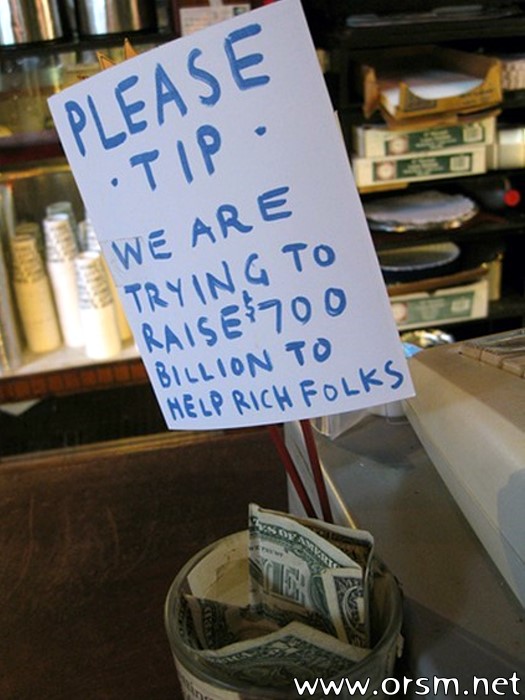 PLEASE
· TIP ·
WE ARE
TRYING TO
RAISE $700
BILLION TO
HELP RICH FOLKS
www.orsm.net